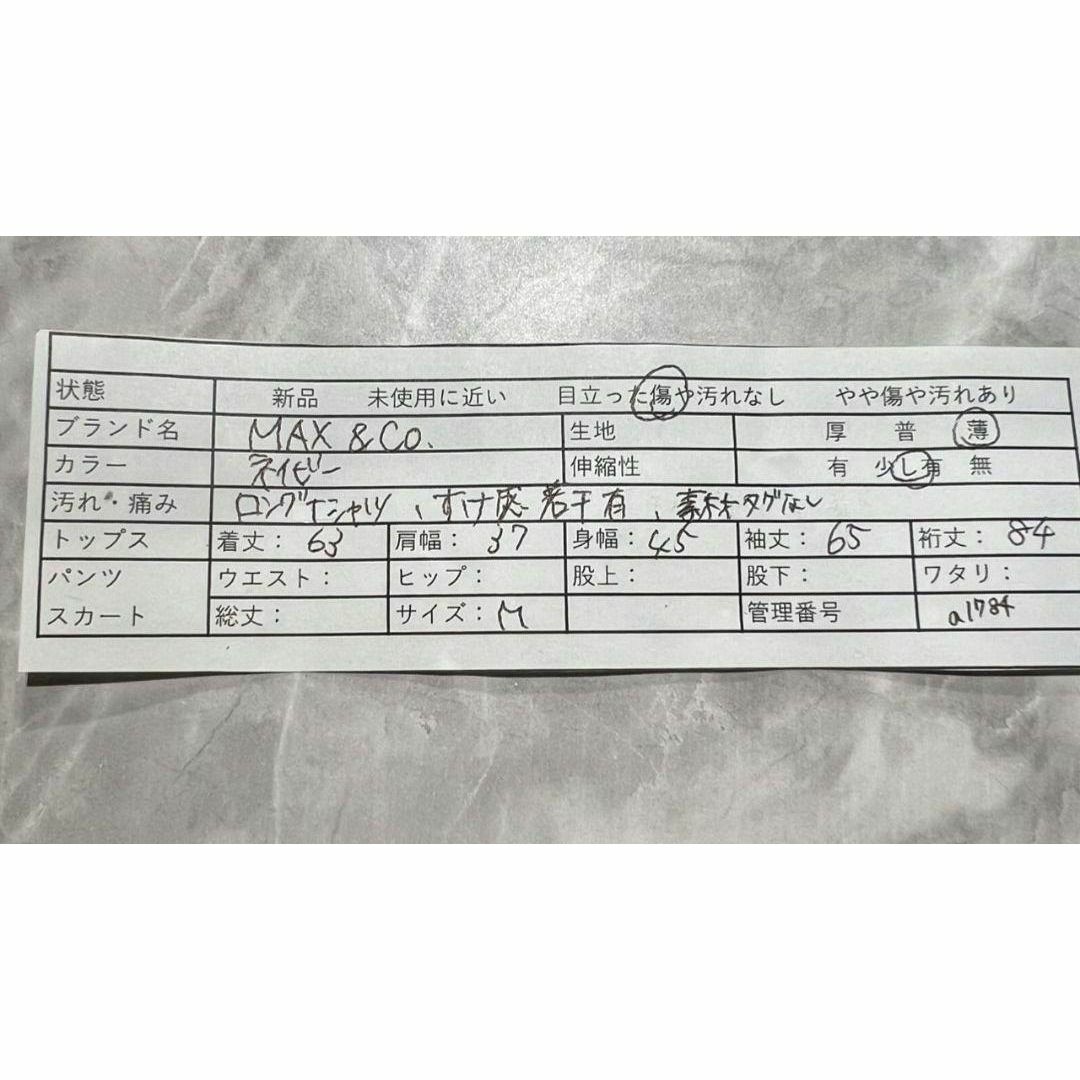 状態 新品 未使用に近い 目立った傷や汚れなし やや傷や汚れあり
ブランド名 MAX & CO. 生地 厚 普 薄
カラー ネイビー 伸縮性 有 少し有 無
汚れ・痛み ロングTシャツ、すけ感若干有、素材タグなし
トップス 着丈：63 肩幅：37 身幅：45 袖丈：65 裄丈：84
パンツ ウエスト： ヒップ： 股上： 股下： ワタリ：
スカート 総丈： サイズ：M 管理番号 a1784